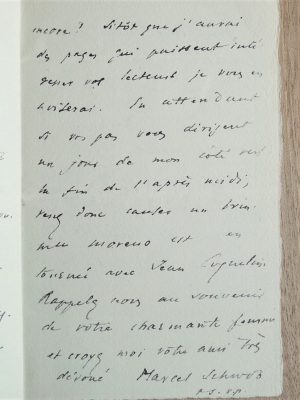 encore? Sitôt que j'aurai
des pages qui puissent inté
resser vos lecteurs je vous en
aviserai. En attendant
si vos pas vous dirigent
un jour de mon côté vers
la fin de l'après midi,
venez donc causer un brin.
Mme Moreno est en
tournée avec Jean Coquelin.
Rappelez nous au souvenir
de votre charmante femme
et croyez moi votre ami très
dévoué Marcel Schwob